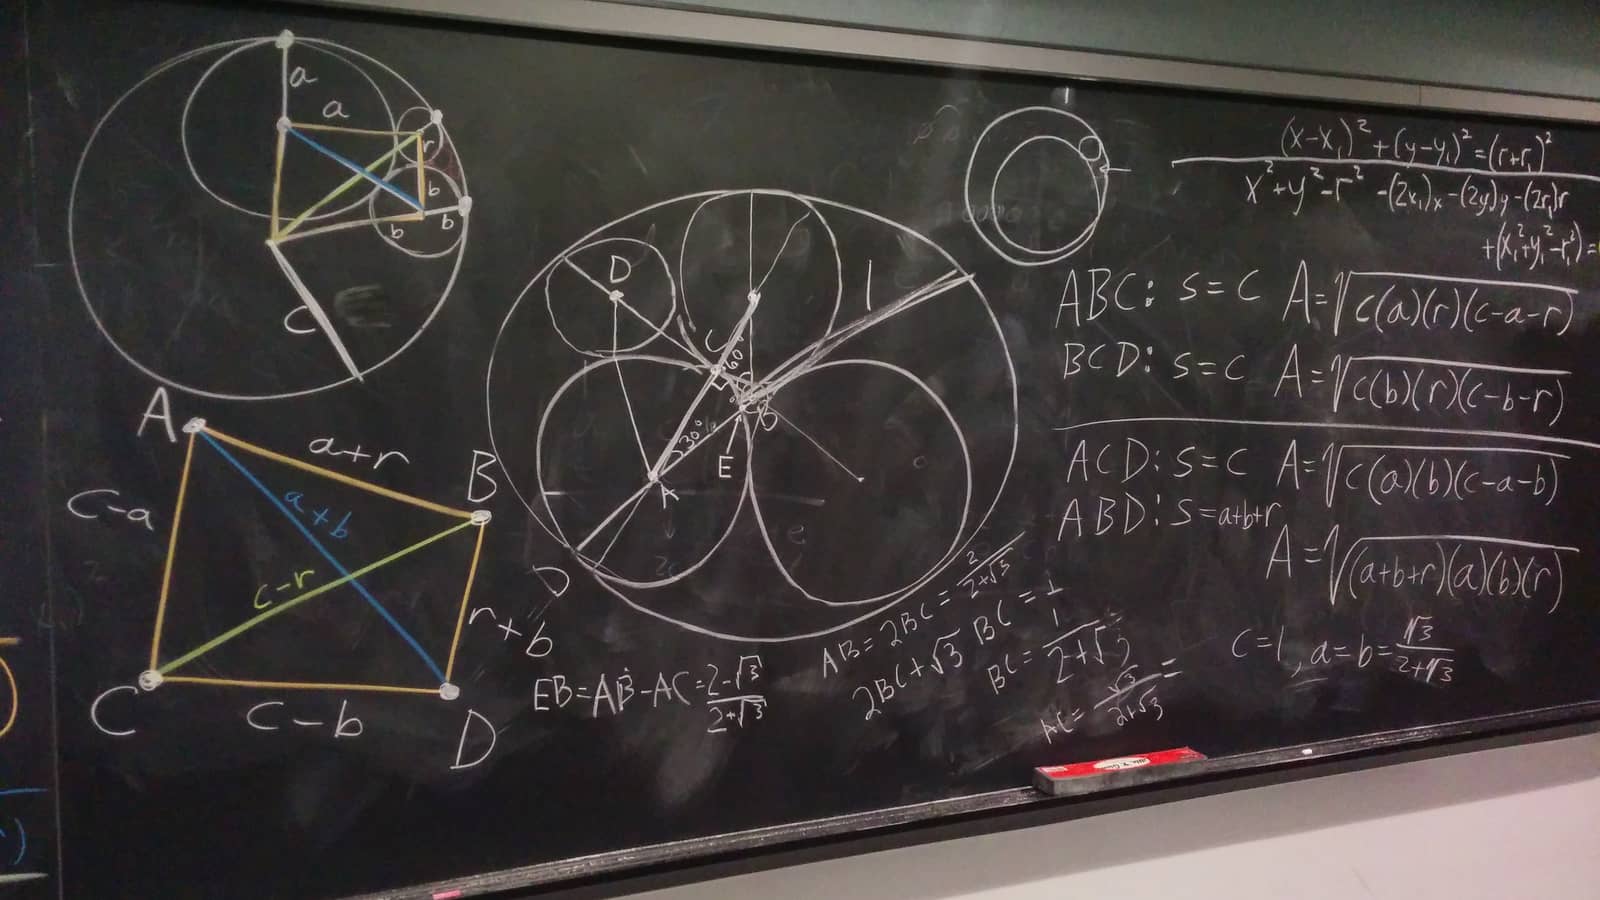 a
a
r
b
b
b
C
A
a+r
B
C-a
a+b
c-r
r+b
C
C-b
D
D
1
C
60°
30°
B
E
A
D
EB=AB-AC=2-√3/2+√3
AB=2BC=2/2+√3
2BC+√3 BC=1
BC=1/2+√3
AC=√3/2+√3=
1
(x-x₁)²+(y-y₁)²=(r+r₁)²
x²+y²-r²-(2x₁)x-(2y₁)y-(2r₁)r
+(x₁²+y₁²-r₁²)=
ABC: S=C A=√c(a)(r)(c-a-r)
BCD: S=C A=√c(b)(r)(c-b-r)
ACD: S=C A=√c(a)(b)(c-a-b)
ABD: S=a+b+r
A=√(a+b+r)(a)(b)(r)
C=1, a=b=√3/2+√3